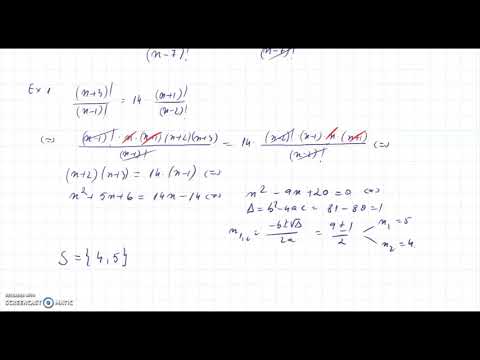 (n-7)!
Ex 1 (n+3)!/(n-1)! = 14 · (n+1)!/(n-2)!
⇔ (n-1)! · n · (n+1)(n+2)(n+3)/(n-1)! = 14 · (n-2)! (n-1) n (n+1)/(n-2)! ⇔
(n+2)(n+3) = 14 · (n-1) ⇔
n² + 5n + 6 = 14n - 14 ⇔
n² - 9n + 20 = 0 ⇔
Δ = b² - 4ac = 81 - 80 = 1
n₁,₂ = -b±√Δ/2a = 9±1/2
n₁ = 5
n₂ = 4
S = {4, 5}
RECORDED WITH
SCREENCAST MATIC